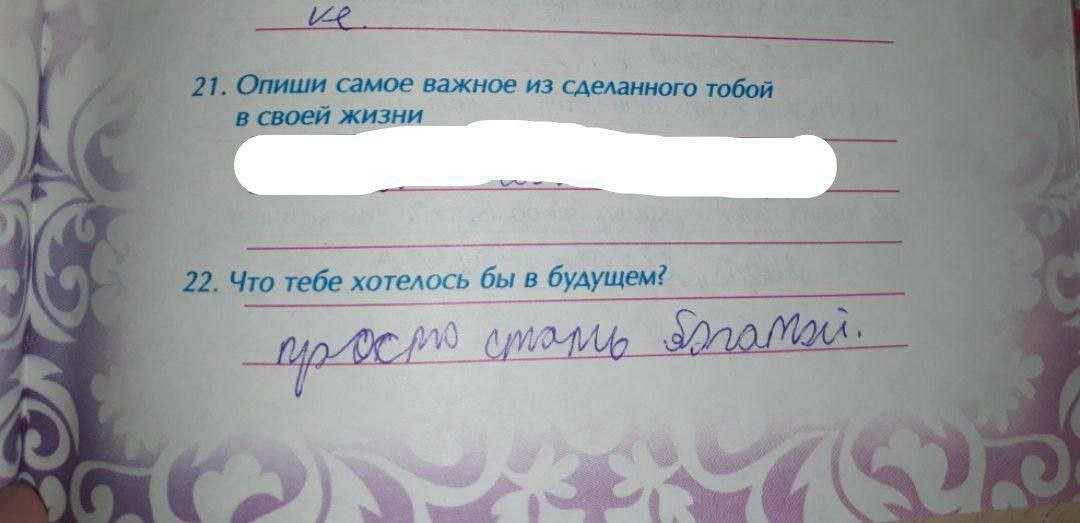 ке.
21. Опиши самое важное из сделанного тобой
в своей жизни
22. Что тебе хотелось бы в будущем?
просто стать богатой.